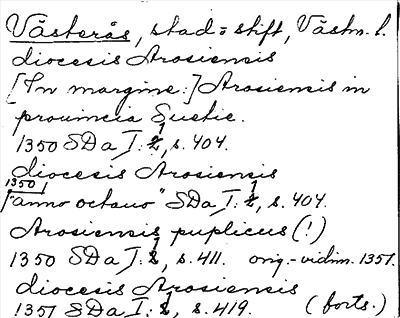 Västerås, stad o. stift, Västm. l.
diocesis Arosiensis
[In margine:] Arosiensis in
prouincia Suetie.
1350 SDa I: 1, s. 404.
diocesis Arosiensis
1350
"anno octauo" SDa I: 1, s. 404.
Arosiensis puplicus (!)
1350 SDa I: 1, s. 411. orig.-vidim. 1351.
diocesis Arosiensis
1351 SDa I: 1, s. 419. (forts.)